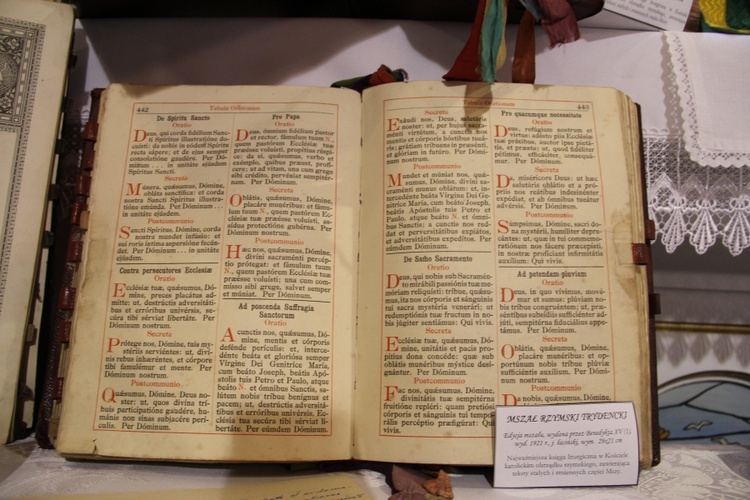 442
Tabula Orationum
De Spiritu Sancto
Oratio
Deus, qui corda fidélium Sanc-
ti Spíritus illustratióne do-
cuísti: da nobis in eódem Spíritu
recta sápere; et de ejus semper
consolatióne gaudére. Per Dó-
minum ... in unitáte ejúsdem
Secreta
Múnera, quǽsumus, Dómine,
obláta sanctífica: et corda
nostra Sancti Spíritus illustra-
tióne emúnda. Per Dóminum ...
in unitáte ejúsdem.
Postcommunio
Sancti Spíritus, Dómine, corda
nostra mundet infúsio: et
sui roris íntima aspersióne fœcún-
det. Per Dóminum ... in unitáte
ejúsdem.
Contra persecutores Ecclesiæ
Oratio
Ecclésiæ tuæ, quǽsumus, Dó-
mine, preces placátus ad-
mítte: ut, destrúctis adversitáti-
bus et erróribus univérsis, se-
cúra tibi sérviat libertáte. Per
Dóminum nostrum.
Secreta
Prótege nos, Dómine, tuis my-
stériis serviéntes: ut, diví-
nis rebus inhæréntes, et córpore
tibi famulémur et mente. Per
Dóminum nostrum.
Postcommunio
Quǽsumus, Dómine, Deus no-
ster: ut, quos divína trí-
buis participatióne gaudére, hu-
mánis non sinas subjacére perí-
culis. Per Dóminum.
Pro Papa
Oratio
Deus, ómnium fidélium pastor
et rector, fámulum tuum N.,
quem pastórem Ecclésiæ tuæ
præésse voluísti, propítius réspi-
ce: da ei, quǽsumus, verbo et
exémplo, quibus præest, profí-
cere; ut ad vitam, una cum grege
sibi crédito, pervéniat sempitér-
nam. Per Dóminum.
Secreta
Oblátis, quǽsumus, Dómine,
placáre munéribus: et fámu-
lum tuum N., quem pastórem Ec-
clésiæ tuæ præésse voluísti, as-
sídua protectióne gubérna. Per
Dóminum nostrum.
Postcommunio
Hæc nos, quǽsumus, Dómine,
divíni sacraménti percép-
tio prótegat: et fámulum tuum
N., quem pastórem Ecclésiæ tuæ
præésse voluísti; una cum com-
mísso sibi grege, salvet semper
et múniat. Per Dóminum.
Ad poscenda Suffragia
Sanctorum
Oratio
A cunctis nos, quǽsumus, Dó-
mine, mentis et córporis
défende perículis: et, interce-
dénte beáta et gloriósa semper
Vírgine Dei Genitríce María,
cum beáto Joseph, beátis Apó-
stolis tuis Petro et Paulo, atque
beáto N. et ómnibus Sanctis, sa-
lútem nobis tríbue benígnus et
pacem; ut, destrúctis adversitáti-
bus et erróribus univérsis, Ec-
clésia tua secúra tibi sérviat li-
bertáte. Per eúmdem Dóminum.
Tabula Orationum
443
Secreta
Exáudi nos, Deus, salutáris
noster: ut, per hujus sacra-
ménti virtútem, a cunctis nos
mentis et córporis hóstibus tueá-
ris; grátiam tríbuens in præsénti,
et glóriam in futúro. Per Dómi-
num nostrum.
Postcommunio
Mundet et múniat nos, quǽ-
sumus, Dómine, divíni sa-
craménti munus oblátum: et, in-
tercedénte beáta Vírgine Dei Ge-
nitríce María, cum beáto Joseph,
beátis Apóstolis tuis Petro et
Paulo, atque beáto N. et ómni-
bus Sanctis; a cunctis nos red-
dat et perversitátibus expiátos,
et adversitátibus expedítos. Per
eúmdem Dóminum.
De Smo Sacramento
Oratio
Deus, qui nobis sub Sacramén-
to mirábili passiónis tuæ me-
móriam reliquísti: tríbue, quǽsu-
mus, ita nos córporis et sánguinis
tui sacra mystéria venerári; ut
redemptiónis tuæ fructum in no-
bis júgiter sentiámus: Qui vivis.
Secreta
Ecclésiæ tuæ, quǽsumus, Dó-
mine, unitátis et pacis pro-
pítius dona concéde: quæ sub
oblátis munéribus mýstice desi-
gnántur. Per Dóminum.
Postcommunio
Fac nos, quǽsumus, Dómine,
divinitátis tuæ sempitérna
fruitióne repléri: quam pretiósi
córporis et sánguinis tui tempo-
rális percéptio præfigúrat: Qui
vivis.
Pro quacumque necessitate
Oratio
Deus, refúgium nostrum et
virtus: adésto piis Ecclésiæ
tuæ précibus, auctor ipse pietá-
tis, et præsta; ut, quod fidéliter
pétimus, efficáciter, consequá-
mur. Per Dóminum.
Secreta
Da, miséricors Deus: ut hæc
salutáris oblátio et a pró-
priis nos reátibus indesinénter
expédiat, et ab ómnibus tueátur
advérsis. Per Dóminum.
Postcommunio
Súmpsimus, Dómine, sacri do-
na mystérii, humíliter depre-
cántes: ut, quæ in tui commemo-
ratiónem nos fácere præcepísti,
in nostræ profíciant infirmitátis
auxílium: Qui vivis.
Ad petendam pluviam
Oratio
Deus, in quo vívimus, mové-
mur et sumus: plúviam no-
bis tríbue congruéntem; ut, præ-
séntibus subsídiis sufficiénter ad-
júti, sempitérna fiduciálius appe-
támus. Per Dóminum.
Secreta
Oblátis, quǽsumus, Dómine,
placáre munéribus: et op-
portúnum nobis tríbue plúviæ
sufficiéntis auxílium. Per Dómi-
num nostrum.
Postcommunio
Da nobis,
MSZAŁ RZYMSKI TRYDENCKI
Edycja mszału, wydana przez Benedykta XV (!),
wyd. 1921 r., j. łaciński, wym. 29x21 cm
Najważniejsza księga liturgiczna w Kościele
katolickim obrządku rzymskiego, zawierająca
teksty stałych i zmiennych części Mszy.